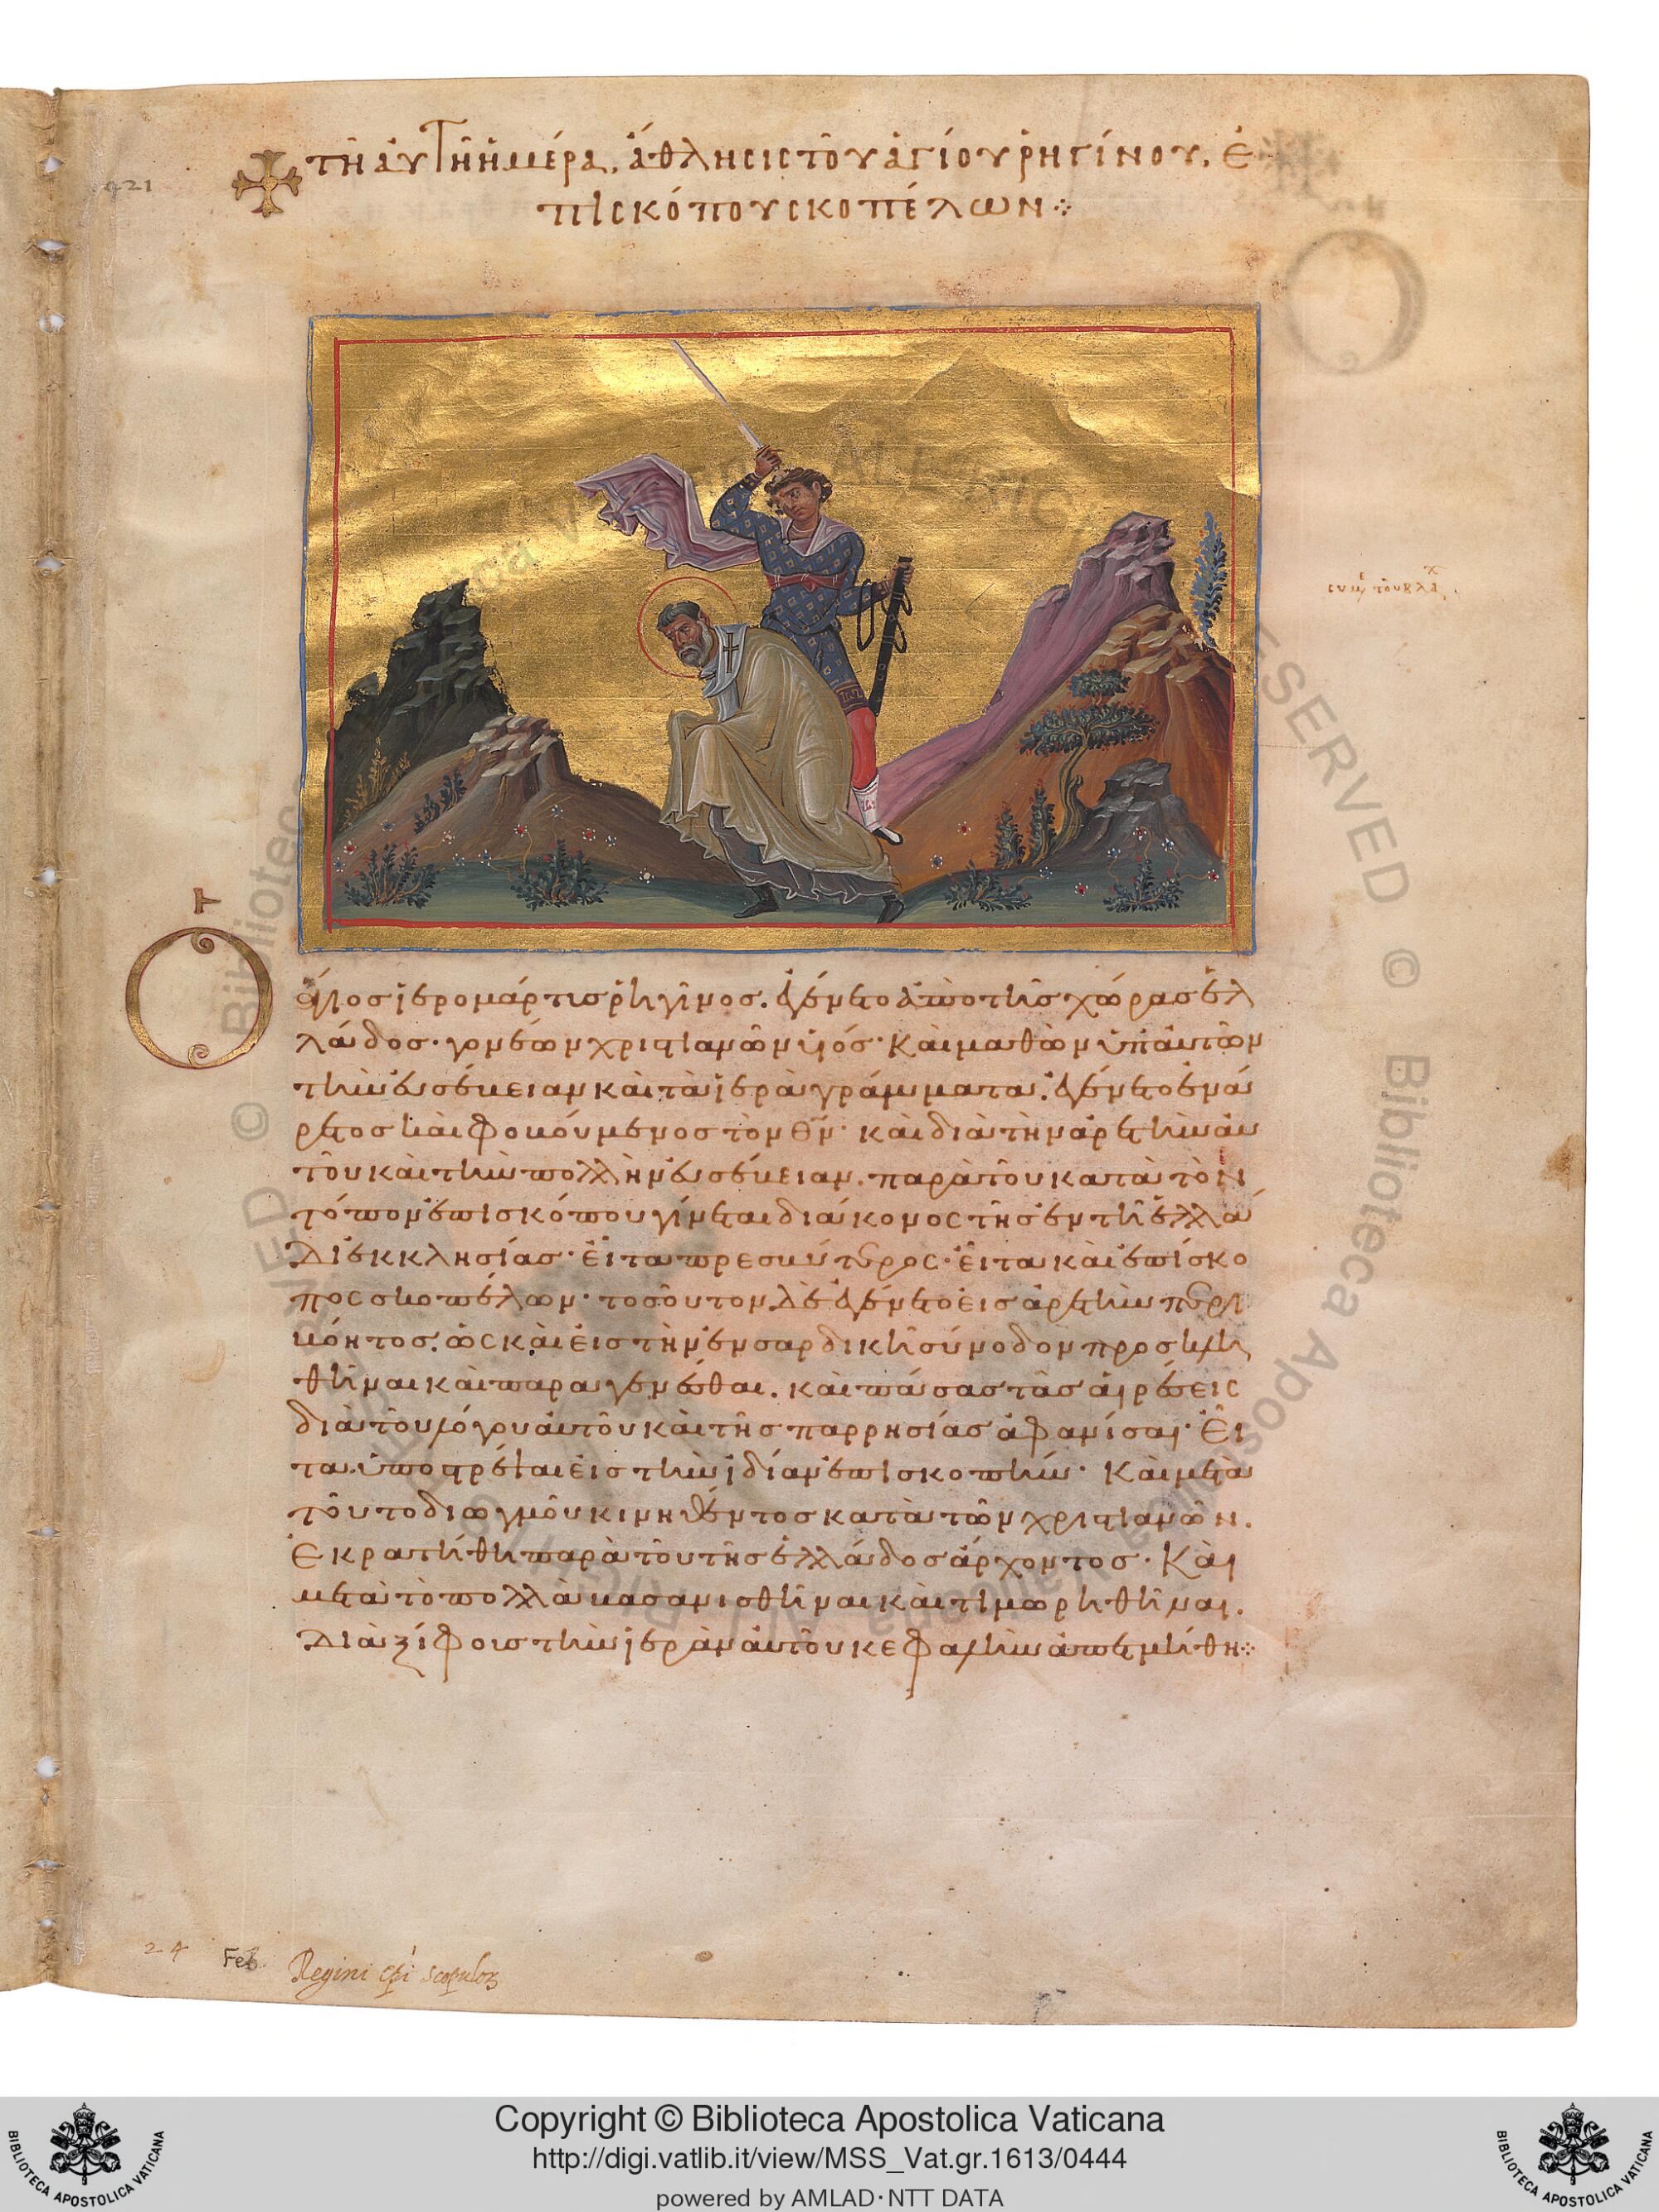 421
τῆ αὐτῆ ἡμέρα, ἄθλησις τοῦ ἁγίου ῥηγίνου, ἐ
πισκόπου σκοπέλων
συμε τοῦ βλαχ
Ὁ ἅγιος ἱερομάρτυς ῥηγῖνος. ἐγένετο ἀπὸ τῆς χώρας ἑλ
λάδος· γονέων χριστιανῶν υἱός· Καὶ μαθὼν ὑπ' αὐτῶν
τὴν εὐσέβειαν καὶ τὰ ἱερὰ γράμματα. ἐγένετο ἐνά
ρετος καὶ φοβούμενος τὸν θν· καὶ διὰ τὴν ἀρετὴν αὐ
τοῦ καὶ τὴν πολλὴν εὐσέβειαν. παρὰ τοῦ κατὰ τὸν
τόπον ἐπισκόπου γίνεται διάκονος τῆς ἐν τῆ ἑλλά
δι ἐκκλησίας· Εἶτα πρεσβύτερος· εἶτα καὶ ἐπίσκο
πος σκοπέλων· τοσοῦτον δὲ ἐγένετο εἰς ἀρετὴν περι
βόητος. ὡς καὶ εἰς τὴν ἐν σαρδικῆ σύνοδον προσκλη
θῆναι καὶ παραγενέσθαι. καὶ πάσας τὰς αἱρέσεις
διὰ τοῦ λόγου αὐτοῦ καὶ τῆς παρρησίας ἀφανίσαι· Εἶ
τα ὑποστρέψαι εἰς τὴν ἰδίαν ἐπισκοπήν· Καὶ μετὰ
τοῦτο διωγμοῦ κινηθέντος κατὰ τῶν χριστιανῶν.
Ἐκρατήθη παρὰ τοῦ τῆς ἑλλάδος ἄρχοντος· Καὶ
μετὰ τὸ πολλὰ βασανισθῆναι καὶ τιμωρηθῆναι.
Διὰ ξίφους τὴν ἱερὰν αὐτοῦ κεφαλὴν ἀπετμήθη
24 Feb. Regini epi scopulor
Copyright © Biblioteca Apostolica Vaticana
http://digi.vatlib.it/view/MSS_Vat.gr.1613/0444
powered by AMLAD·NTT DATA
BIBLIOTECA APOSTOLICA VATICANA
BIBLIOTECA APOSTOLICA VATICANA